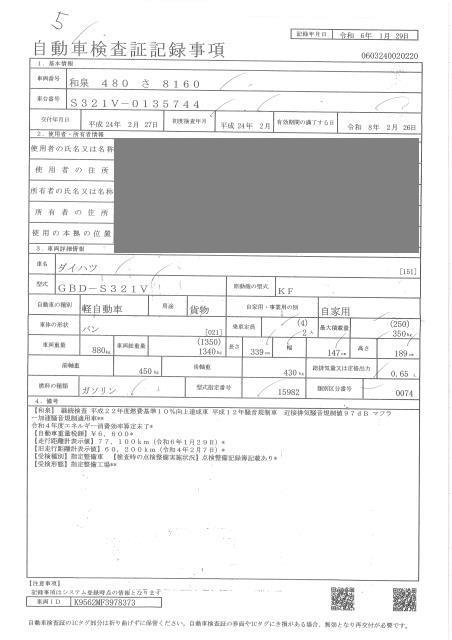 5
記録年月日 令和 6年 1月 29日
自動車検査証記録事項
0603240020220
1. 基本情報
車両番号 和泉 480 さ 8160
車台番号 S321V-0135744
交付年月日 平成 24年 2月 27日 初度検査年月 平成 24年 2月 有効期間の満了する日 令和 8年 2月 26日
2. 使用者・所有者情報
使用者の氏名又は名称
使用者の住所
所有者の氏名又は名称
所有者の住所
使用の本拠の位置
3. 車両詳細情報
車名 ダイハツ [151]
型式 GBD-S321V 原動機の型式 KF
自動車の種別 軽自動車 用途 貨物 自家用・事業用の別 自家用
車体の形状 バン [021] 乗車定員 (4) 2人 最大積載量 (250) 350kg
車両重量 880kg 車両総重量 (1350) 1340kg 長さ 339cm 幅 147cm 高さ 189cm
前軸重 450kg 後軸重 430kg 総排気量又は定格出力 0.65L
燃料の種類 ガソリン 型式指定番号 15982 類別区分番号 0074
4. 備考
【和泉】 継続検査 平成22年度燃費基準10%向上達成車 平成12年騒音規制車 近接排気騒音規制値97dB マフラ
ー加速騒音規制適用車**
令和4年度エネルギー消費効率算定未了*
【自動車重量税額】 ¥6,600*
【走行距離計表示値】 77,100km (令和6年1月29日)*
【旧走行距離計表示値】 60,200km (令和4年2月7日)*
【受検種別】指定整備車 【検査時の点検整備実施状況】点検整備記録簿記載あり*
【受検形態】指定整備工場**
【注意事項】
記録事項はシステム登録時点の情報となります
車両ID K9562MF3978373
自動車検査証のICタグ部分は折り曲げずに保管ください。自動車検査証の券面やICタグにき損がある場合、無効となり再交付が必要です。